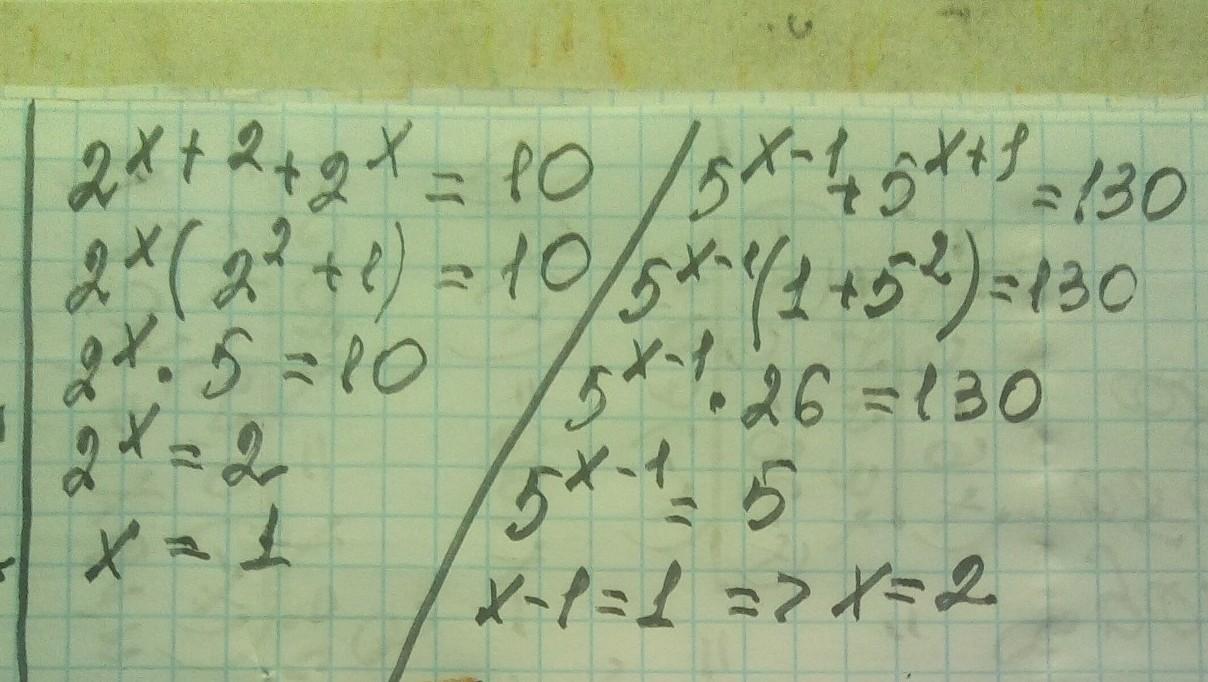 2^{x+2} + 2^x = 10
2^x (2^2 + 1) = 10
2^x · 5 = 10
2^x = 2
x = 1
5^{x-1} + 5^{x+1} = 130
5^{x-1} (1 + 5^2) = 130
5^{x-1} · 26 = 130
5^{x-1} = 5
x - 1 = 1 => x = 2